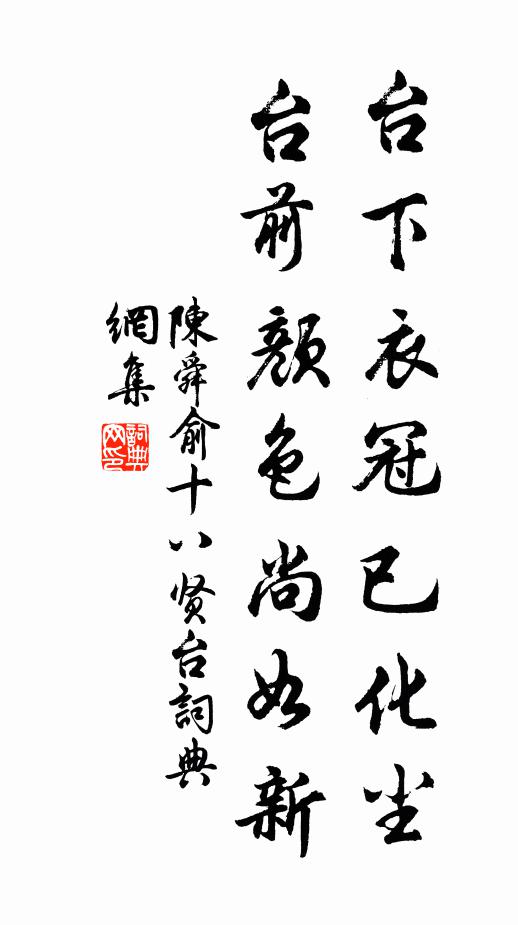 台下衣冠已化尘
台前颜色尚如新
陳舜俞十八贤台詞典
網集
詞典
网印